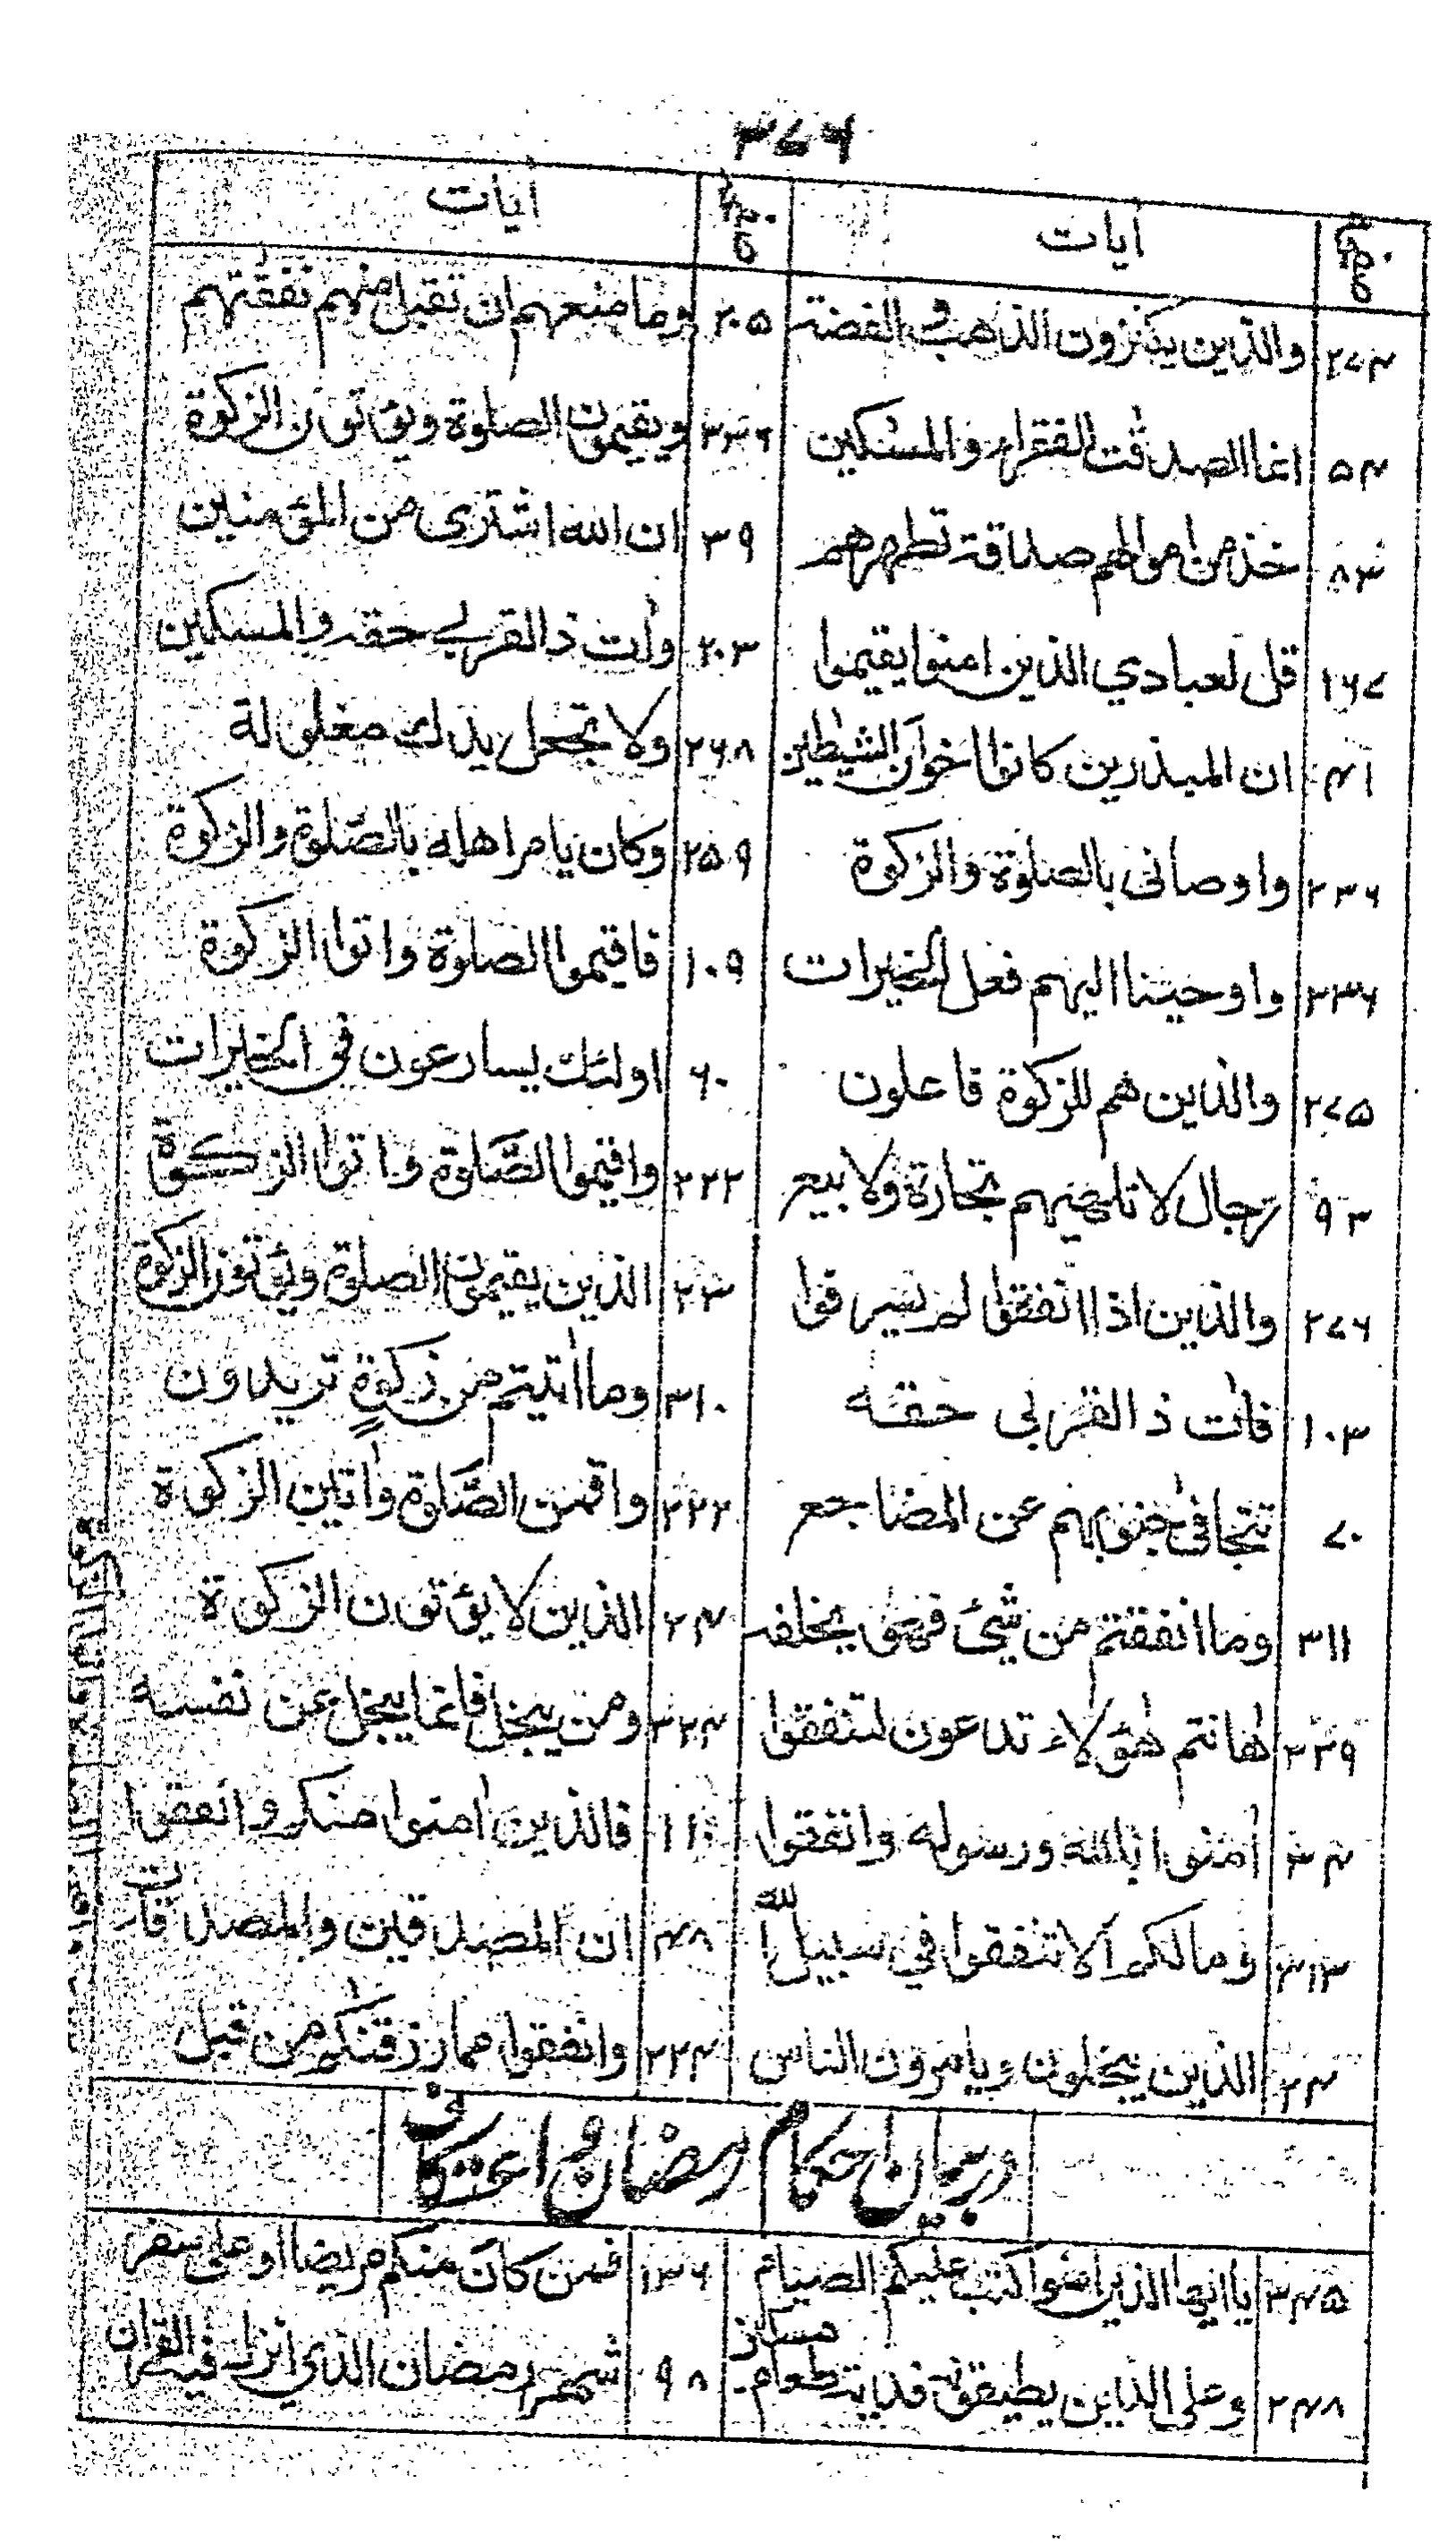 ۳۷۶
آیات آیات
۲۷۴ والذین یکنزون الذهب والفضة ۲۰۵ وما منعهم ان تقبل منهم نفقتهم
۵۴ انما الصدقٰت للفقراء والمسٰکین ۳۳۶ ویقیمون الصلوة ویؤتون الزکوة
۸۳ خذ من اموالهم صداقة تطهرهم ۳۹ ان الله اشتری من المؤمنین
۱۶۷ قل لعبادي الذین اٰمنوا یقیموا ۲۰۳ واٰت ذالقربے حقه والمسکین
۴۱ ان المبذرین کانوا اخوان الشیٰطین ۲۶۸ ولا تجعل یدك مغلولة
۲۳۶ واوصانی بالصلوٰة والزکوة ۲۵۹ وکان یامر اهله بالصّلوة والزکوة
۲۳۶ واوحینا الیهم فعل الخیرات ۱۰۹ فاقیموا الصلوة واتوا الزکوة
۲۷۵ والذین هم للزکوة فاعلون ۶۰ اولٰئك یسارعون فی الخیرات
۹۳ رجال لا تلهیهم تجارة ولا بیع ۲۲۲ واقیموا الصّلوة واتوا الزکوة
۲۷۶ والذین اذا انفقوا لم یسرفوا ۲۳ الذین یقیمون الصلوة ویؤتون الزکوة
۱۰۳ فاٰت ذالقربی حقه ۳۱۰ وما اٰتیتم من زکوةٍ تریدون
۷۰ تتجافیٰ جنوبهم عن المضاجع ۲۲۲ واقمن الصّلوة واٰتین الزکوة
۳۱۱ وما انفقتم من شیئ فهو یخلفه ۲۴ الذین لا یؤتون الزکوة
۳۳۹ هٰانتم هٰؤلاء تدعون لتنفقوا ۳۲۴ ومن یبخل فانما یبخل عن نفسه
۳۴ اٰمنوا بالله ورسوله وانفقوا ۱۱۰ فالذین اٰمنوا منکم وانفقوا
۳۱۳ وما لکم الا تنفقوا في سبیل الله ۴۸ ان المصدقین والمصدقات
۲۴ الذین یبخلون ویامرون الناس ۲۲۴ وانفقوا مما رزقنٰکم من قبل
دربیان احکام رمضان و اعتکاف
۳۴۵ یاایها الذین اٰمنوا کتب علیکم الصیام ۱۳۶ فمن کان منکم مریضا او علی سفر
۲۴۸ وعلی الذین یطیقونه فدیة طعام مسکین ۹۸ شهر رمضان الذي انزل فیه القراٰن